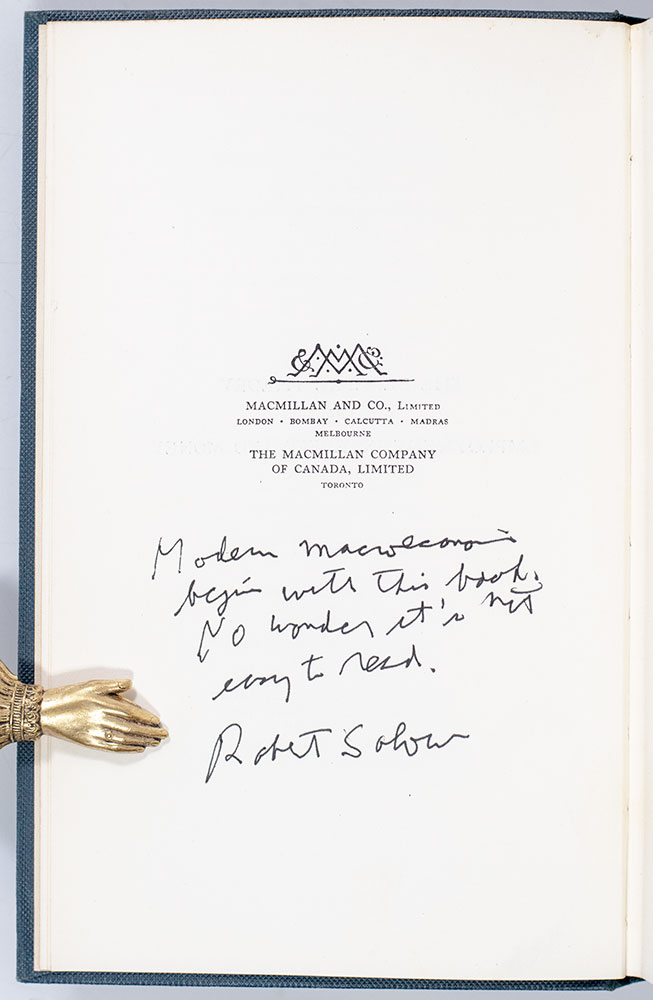 & M M & Co
MACMILLAN AND CO., LIMITED
LONDON · BOMBAY · CALCUTTA · MADRAS
MELBOURNE
THE MACMILLAN COMPANY
OF CANADA, LIMITED
TORONTO
Modern macroeconomics
begins with this book.
No wonder it's not
easy to read.
Robert Solow